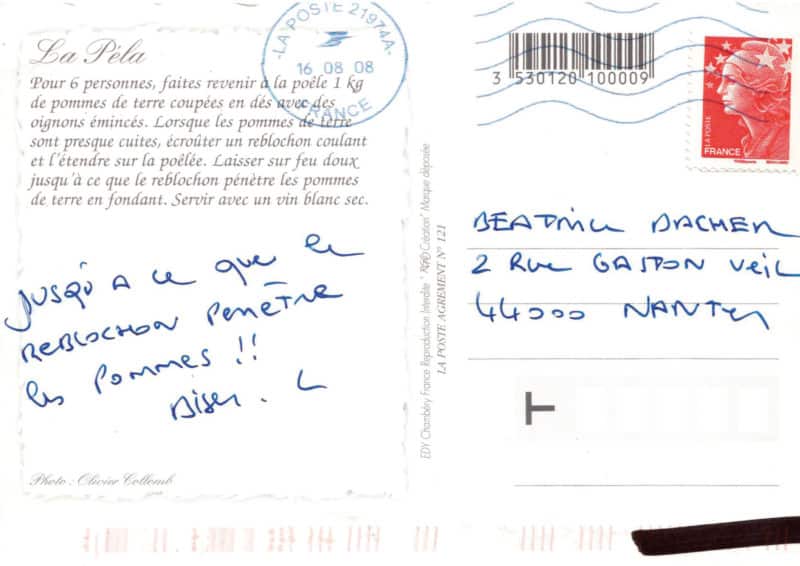 La Péla
Pour 6 personnes, faites revenir à la poêle 1 kg
de pommes de terre coupées en dés avec des
oignons émincés. Lorsque les pommes de terre
sont presque cuites, écroûter un reblochon coulant
et l'étendre sur la poêlée. Laisser sur feu doux
jusqu'à ce que le reblochon pénètre les pommes
de terre en fondant. Servir avec un vin blanc sec.
JUSQU'A ce que le
REBLOCHON PENÈTRE
les POMMES !!
L
Photo : Olivier Collomb
LA POSTE 21974A
16 08 08
FRANCE
EDY Chambéry France Reproduction Interdite " Création" Marque déposée
LA POSTE AGREMENT N° 121
3 530120 100009
LA POSTE
FRANCE
BEATRICE
2 Rue GASTON Veil
44000 NANTES
T